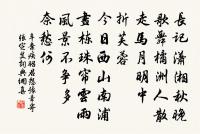 長記瀟湘秋晚
歌舞橘洲人散
走馬月明中
折芙蓉
今日西山南浦
畫棟珠簾雲雨
風景不爭多
奈愁何
辛棄疾昭君怨豫章寄
張定叟詞典網集